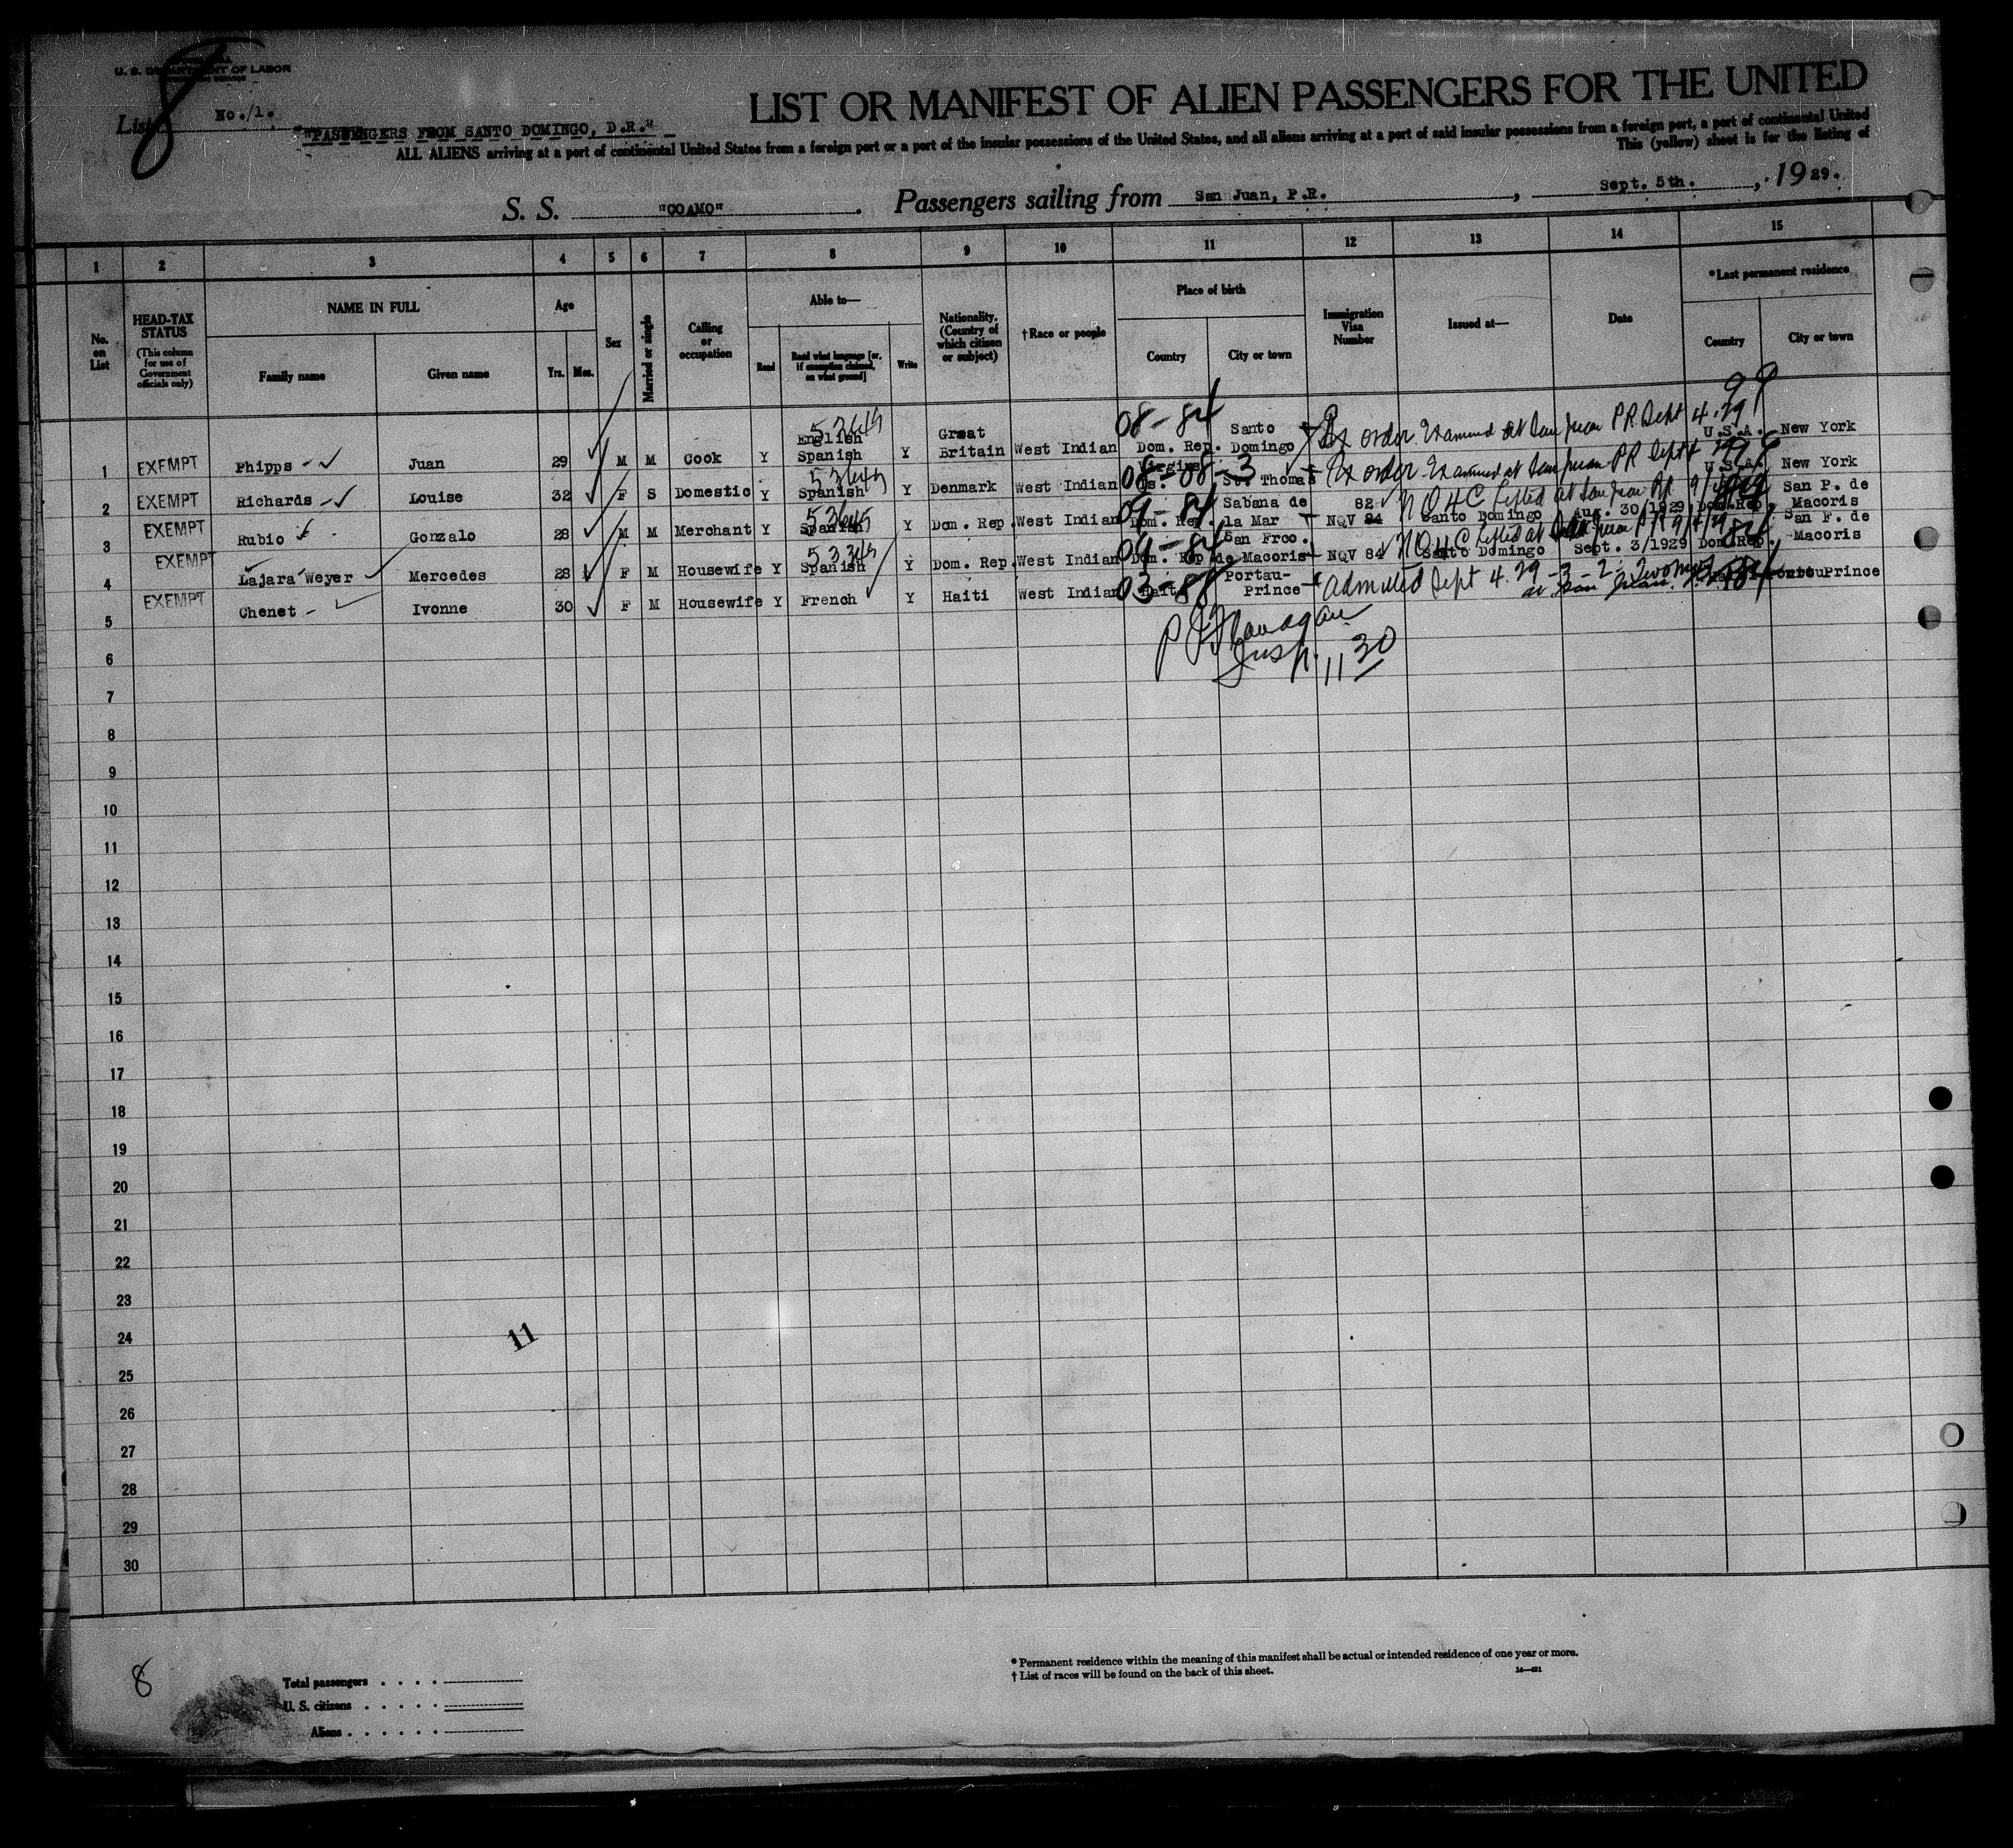 8
U. S. DEPARTMENT OF LABOR
List No. /1.
"PASSENGERS FROM SANTO DOMINGO, D.R."
LIST OR MANIFEST OF ALIEN PASSENGERS FOR THE UNITED
ALL ALIENS arriving at a port of continental United States from a foreign port or a part of the insular possessions of the United States, and all aliens arriving at a port of said insular possessions from a foreign port, a part of continental United
This (yellow) sheet is for the listing of
S. S. "COAMO". Passengers sailing from San Juan, P.R., Sept. 5th., 1929.
1 2 3 4 5 6 7 8 9 10 11 12 13 14 15
No. on List
HEAD-TAX STATUS (This column for use of Government officials only)
NAME IN FULL
Family name
Given name
Age
Yrs. Mos.
Sex
Married or single
Calling or occupation
Able to—
Read
Read what language [or, if exemption claimed, on what ground]
Write
Nationality. (Country of which citizen or subject)
†Race or people
Place of birth
Country
City or town
Immigration Visa Number
Issued at—
Date
*Last permanent residence
Country
City or town
1 EXEMPT Phipps Juan 29 M M Cook Y English Spanish Y Great Britain West Indian Dom. Rep. Santo Domingo Ex order Examined at San Juan P.R. Sept 4.29 U.S.A. New York
2 EXEMPT Richards Louise 32 F S Domestic Y Spanish Y Denmark West Indian St. Thomas Ex order Examined at San Juan P R Sept 4 U.S.A. New York
3 EXEMPT Rubio Gonzalo 28 M M Merchant Y Spanish Y Dom. Rep. West Indian Dom. Rep. Sabana de la Mar NQV 84 82 Santo Domingo Aug. 30/1929 Dom. Rep. San P. de Macoris
4 EXEMPT Lajara Weyer Mercedes 28 F M Housewife Y Spanish Y Dom. Rep. West Indian Dom. Rep. San Frco. de Macoris NQV 84 Santo Domingo Sept. 3/1929 Dom. Rep. San F. de Macoris
5 EXEMPT Chenet Ivonne 30 F M Housewife Y French Y Haiti West Indian Haiti Portau-Prince Admitted Sept 4.29 at San Juan Prince
08-84
53645
09-84
03-88
P J Flanagan
Insp. 11 30
6
7
8
9
10
11
12
13
14
15
16
17
18
19
20
21
22
23
24
25
26
27
28
29
30
11
8
Total passengers
U. S. citizens
Aliens
* Permanent residence within the meaning of this manifest shall be actual or intended residence of one year or more.
† List of races will be found on the back of this sheet.